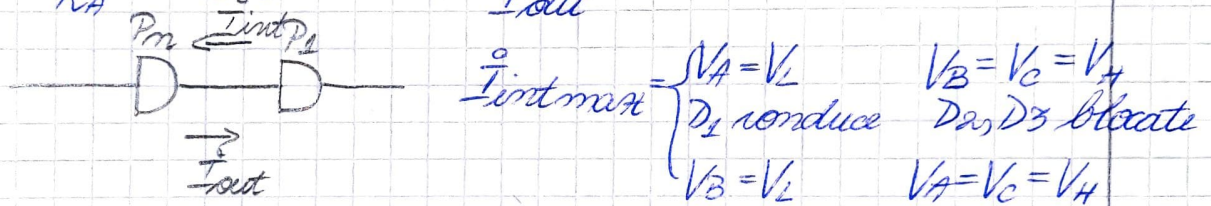 Iout
Pn Iint P1
Iintmax = VA = VL VB = VC = VH
D1 conduce D2, D3 blocate
Iout
VB = VL VA = VC = VH